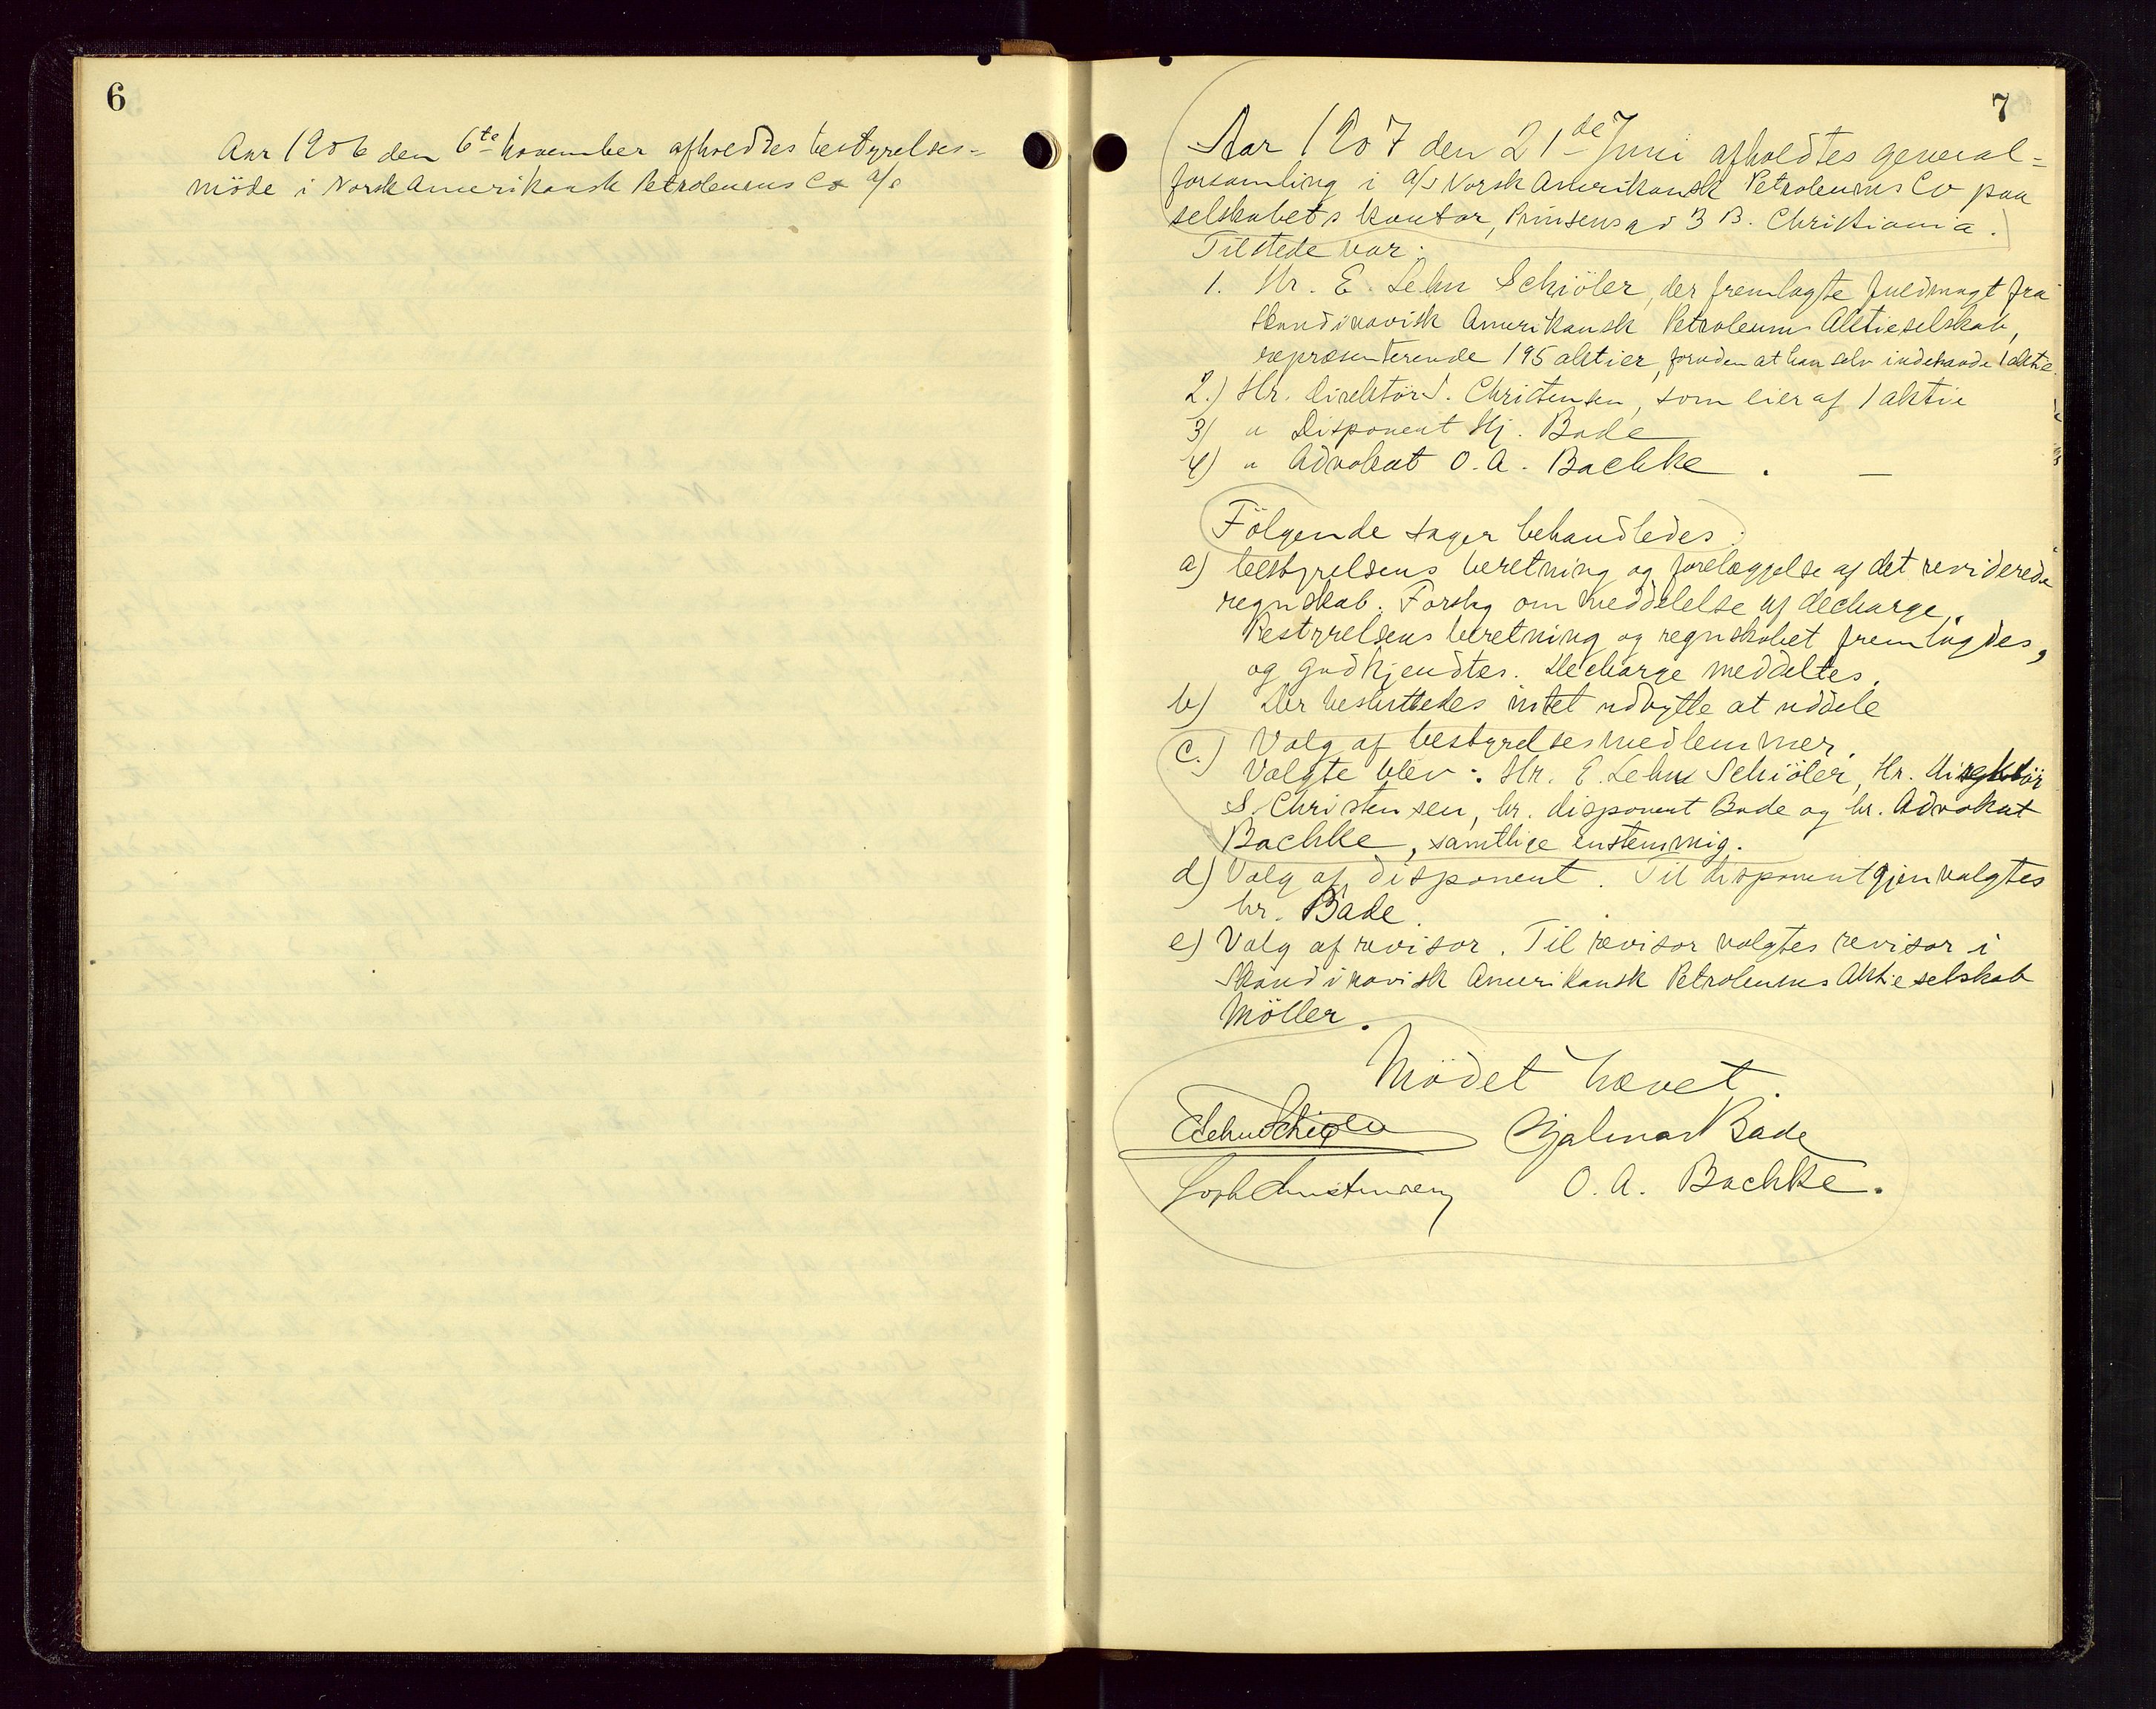 6
Aar 1906 den 6te November afholdtes bestyrelses-
møde i Norsk Amerikansk Petroleums Co a/s
7
Aar 1907 den 21de Juni afholdtes general-
forsamling i a/s Norsk Amerikansk Petroleums Co paa
selskabets kontor, Prinsens gd 3 B. Christiania.
Tilstede var:
1. Hr. E. Lehn Schiöler, der fremlagte fuldmagt fra
Skandinavisk Amerikansk Petroleums Aktieselskab,
repræsenterende 195 aktier, foruden at han selv indehavde 1 aktie.
2.) Hr. Direktör S. Christensen, som eier af 1 aktie
3) " Disponent Hj. Bade
4) " Advokat O. A. Bachke. —
Fölgende sager behandledes:
a) bestyrelsens beretning og forelæggelse af det reviderede
regnskab. Forslag om meddelelse af decharge.
Bestyrelsens beretning og regnskabet fremlagdes,
og godkjendtes. Decharge meddeltes.
b) Der besluttedes intet udbytte at uddele
c.) Valg af bestyrelsesmedlemmer.
Valgte blev: Hr. E. Lehn Schiöler, Hr. Direktör
S. Christensen, hr. disponent Bade og hr. Advokat
Bachke, samtlige enstemmig.
d) Valg af disponent. Til disponent gjenvalgtes
hr. Bade.
e) Valg af revisor. Til revisor valgtes revisor i
Skandinavisk Amerikansk Petroleums Aktieselskab
Möller.
Mödet hævet.
E Lehn Schiöler Hjalmar Bade
Soph Christensen O. A. Bachke.